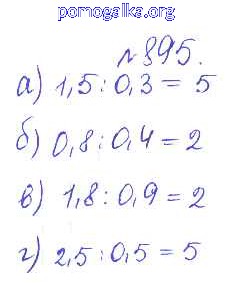 pomogalka.org
№895.
а) 1,5 : 0,3 = 5
б) 0,8 : 0,4 = 2
в) 1,8 : 0,9 = 2
г) 2,5 : 0,5 = 5